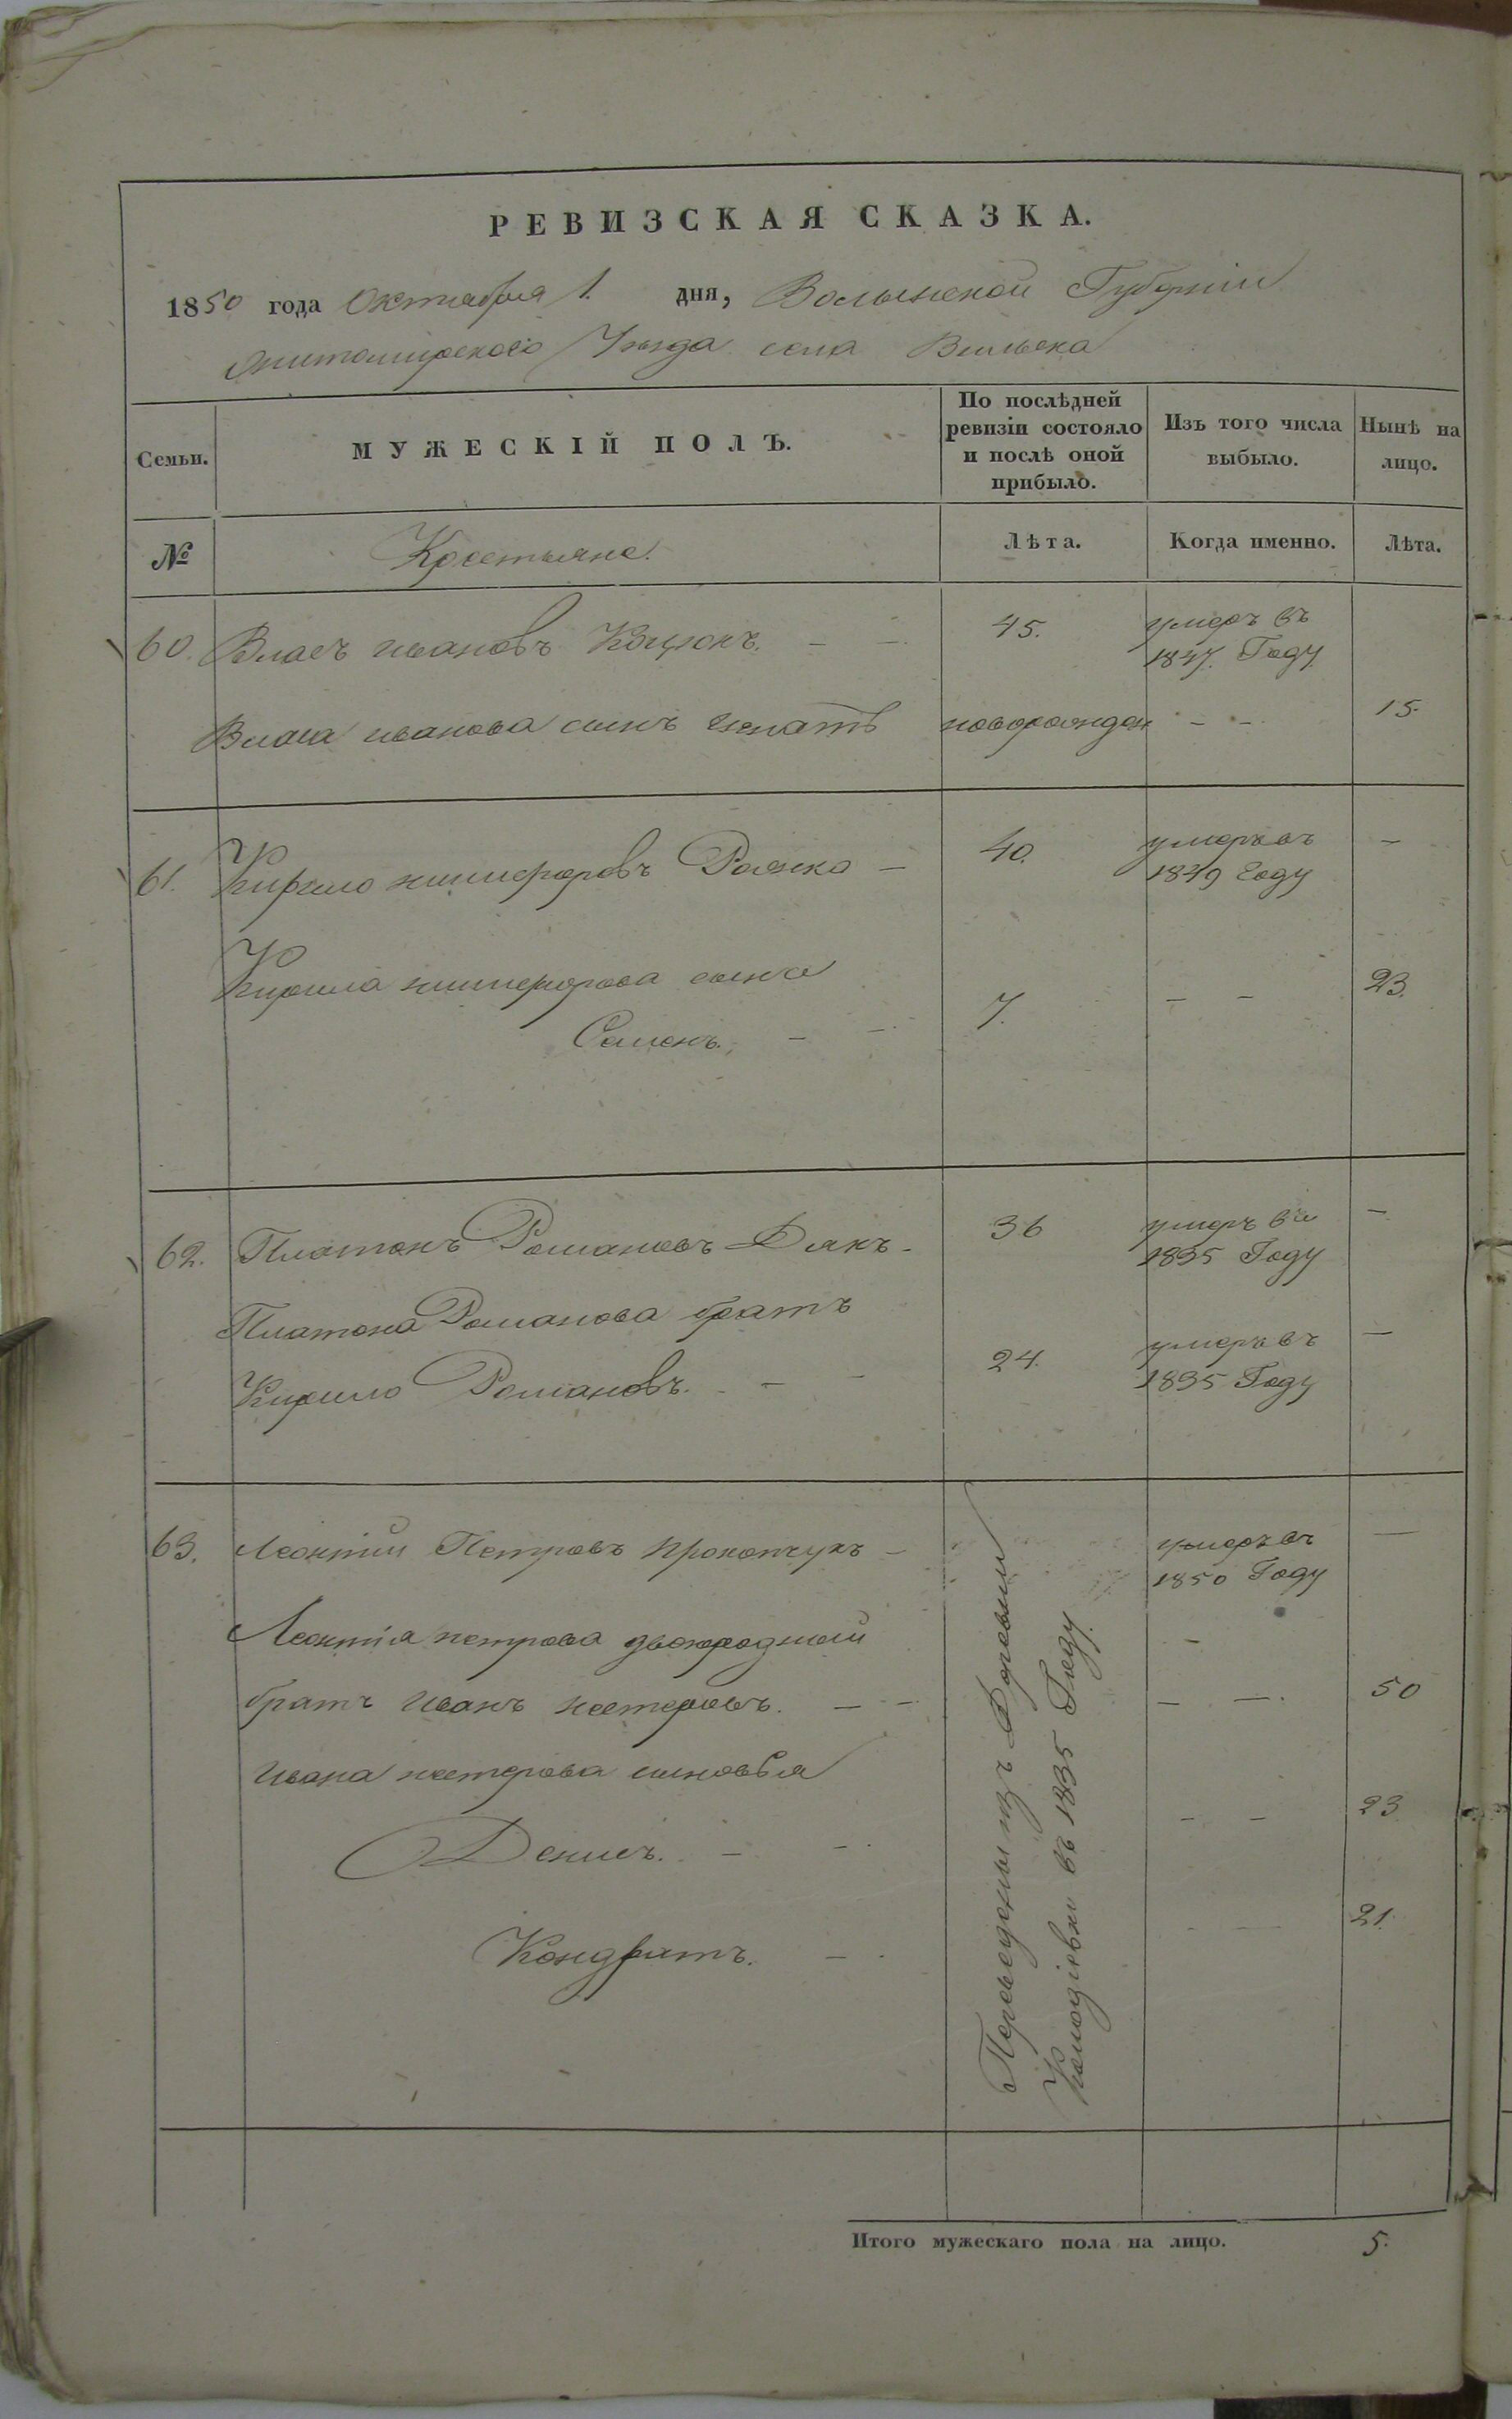 РЕВИЗСКАЯ СКАЗКА.
1850 года Октября 1. дня, Волынской Губернии
Житомирского Уезда села Вильска
Семьи. МУЖЕСКІЙ ПОЛЪ. По послѣдней ревизіи состояло и послѣ оной прибыло. Изъ того числа выбыло. Нынѣ на лицо.
№ Крестьяне. Лѣта. Когда именно. Лѣта.
60. Власъ ивановъ 45. умеръ въ
Году
Власа иванова сынъ игнатъ новорожден - - 15.
61. Кирило никифоровъ 40. умеръ въ -
1849 Году
Кирила никифорова сынъ
Семенъ. - - 7. - - 23.
62. Платонъ Романовъ Дякъ - 36 умеръ въ -
1835 Году
Платона Романова братъ
Кирило Романовъ. - - 24. умеръ въ -
1835 Году
63. Леонтий Петровъ прокопчукъ - умеръ въ -
1850 Году
Леонтія петрова двоюродный -
братъ иванъ нестеровъ. - - - - 50
ивана нестерова сыновья
Денисъ. - - - - 23
Кондратъ. - - - - 21.
Переведены изъ Деревни
въ 1835 Году.
Итого мужескаго пола на лицо. 5.